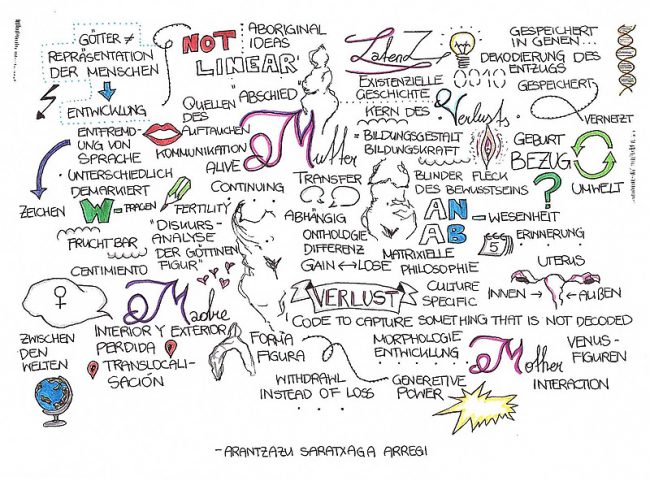 GÖTTER ≠
REPRÄSENTATION
DER MENSCHEN
ENTWICKLUNG
NOT
LINEAR
ABORIGINAL
IDEAS
LATENZ
EXISTENZIELLE
GESCHICHTE
0010
GESPEICHERT
IN GENEN...
DEKODIERUNG DES
ENTZUGS
GESPEICHERT
VERNETZT
ABSCHIED
QUELLEN
DES
AUFTAUCHEN
KERN DES
Verlusts
ENTFREND-
UNG VON
SPRACHE
KOMMUNIKATION
ALIVE
Mutter
"BILDUNGSGESTALT
BILDUNGSKRAFT
GEBURT
BEZUG
UMWELT
UNTERSCHIEDLICH
DEMARKIERT
ZEICHEN
W-FRAGEN
CONTINUING
FERTILITY
TRANSFER
BLINDER FLECK
DES BEWUSSTSEINS
?
FRUCHTBAR
"DISKURS-
ANALYSE
DER GÖTTINEN
FIGUR"
ABHÄNGIG
ONTHOLOGIE
DIFFERENZ
GAIN ↔ LOSE
AN-WESENHEIT
AB
5
ERINNERUNG
MATRIXIELLE
PHILOSOPHIE
UTERUS
CENTIMIENTO
♀
Madre
INTERIOR Y EXTERIOR
PERDIDA
TRANSLOCALI-
SACIÓN
VERLUST
CULTURE
SPECIFIC
INNEN → ← AUßEN
CODE TO CAPTURE SOMETHING THAT IS NOT DECODED
ZWISCHEN
DEN
WELTEN
FORMA
FIGURA
MORPHOLOGIE
ENTWICKLUNG
Mother
VENUS-
FIGUREN
INTERACTION
WITHDRAWL
INSTEAD OF LOSS
GENERETIVE
POWER
-ARANTZAZU SARATXAGA ARREGI